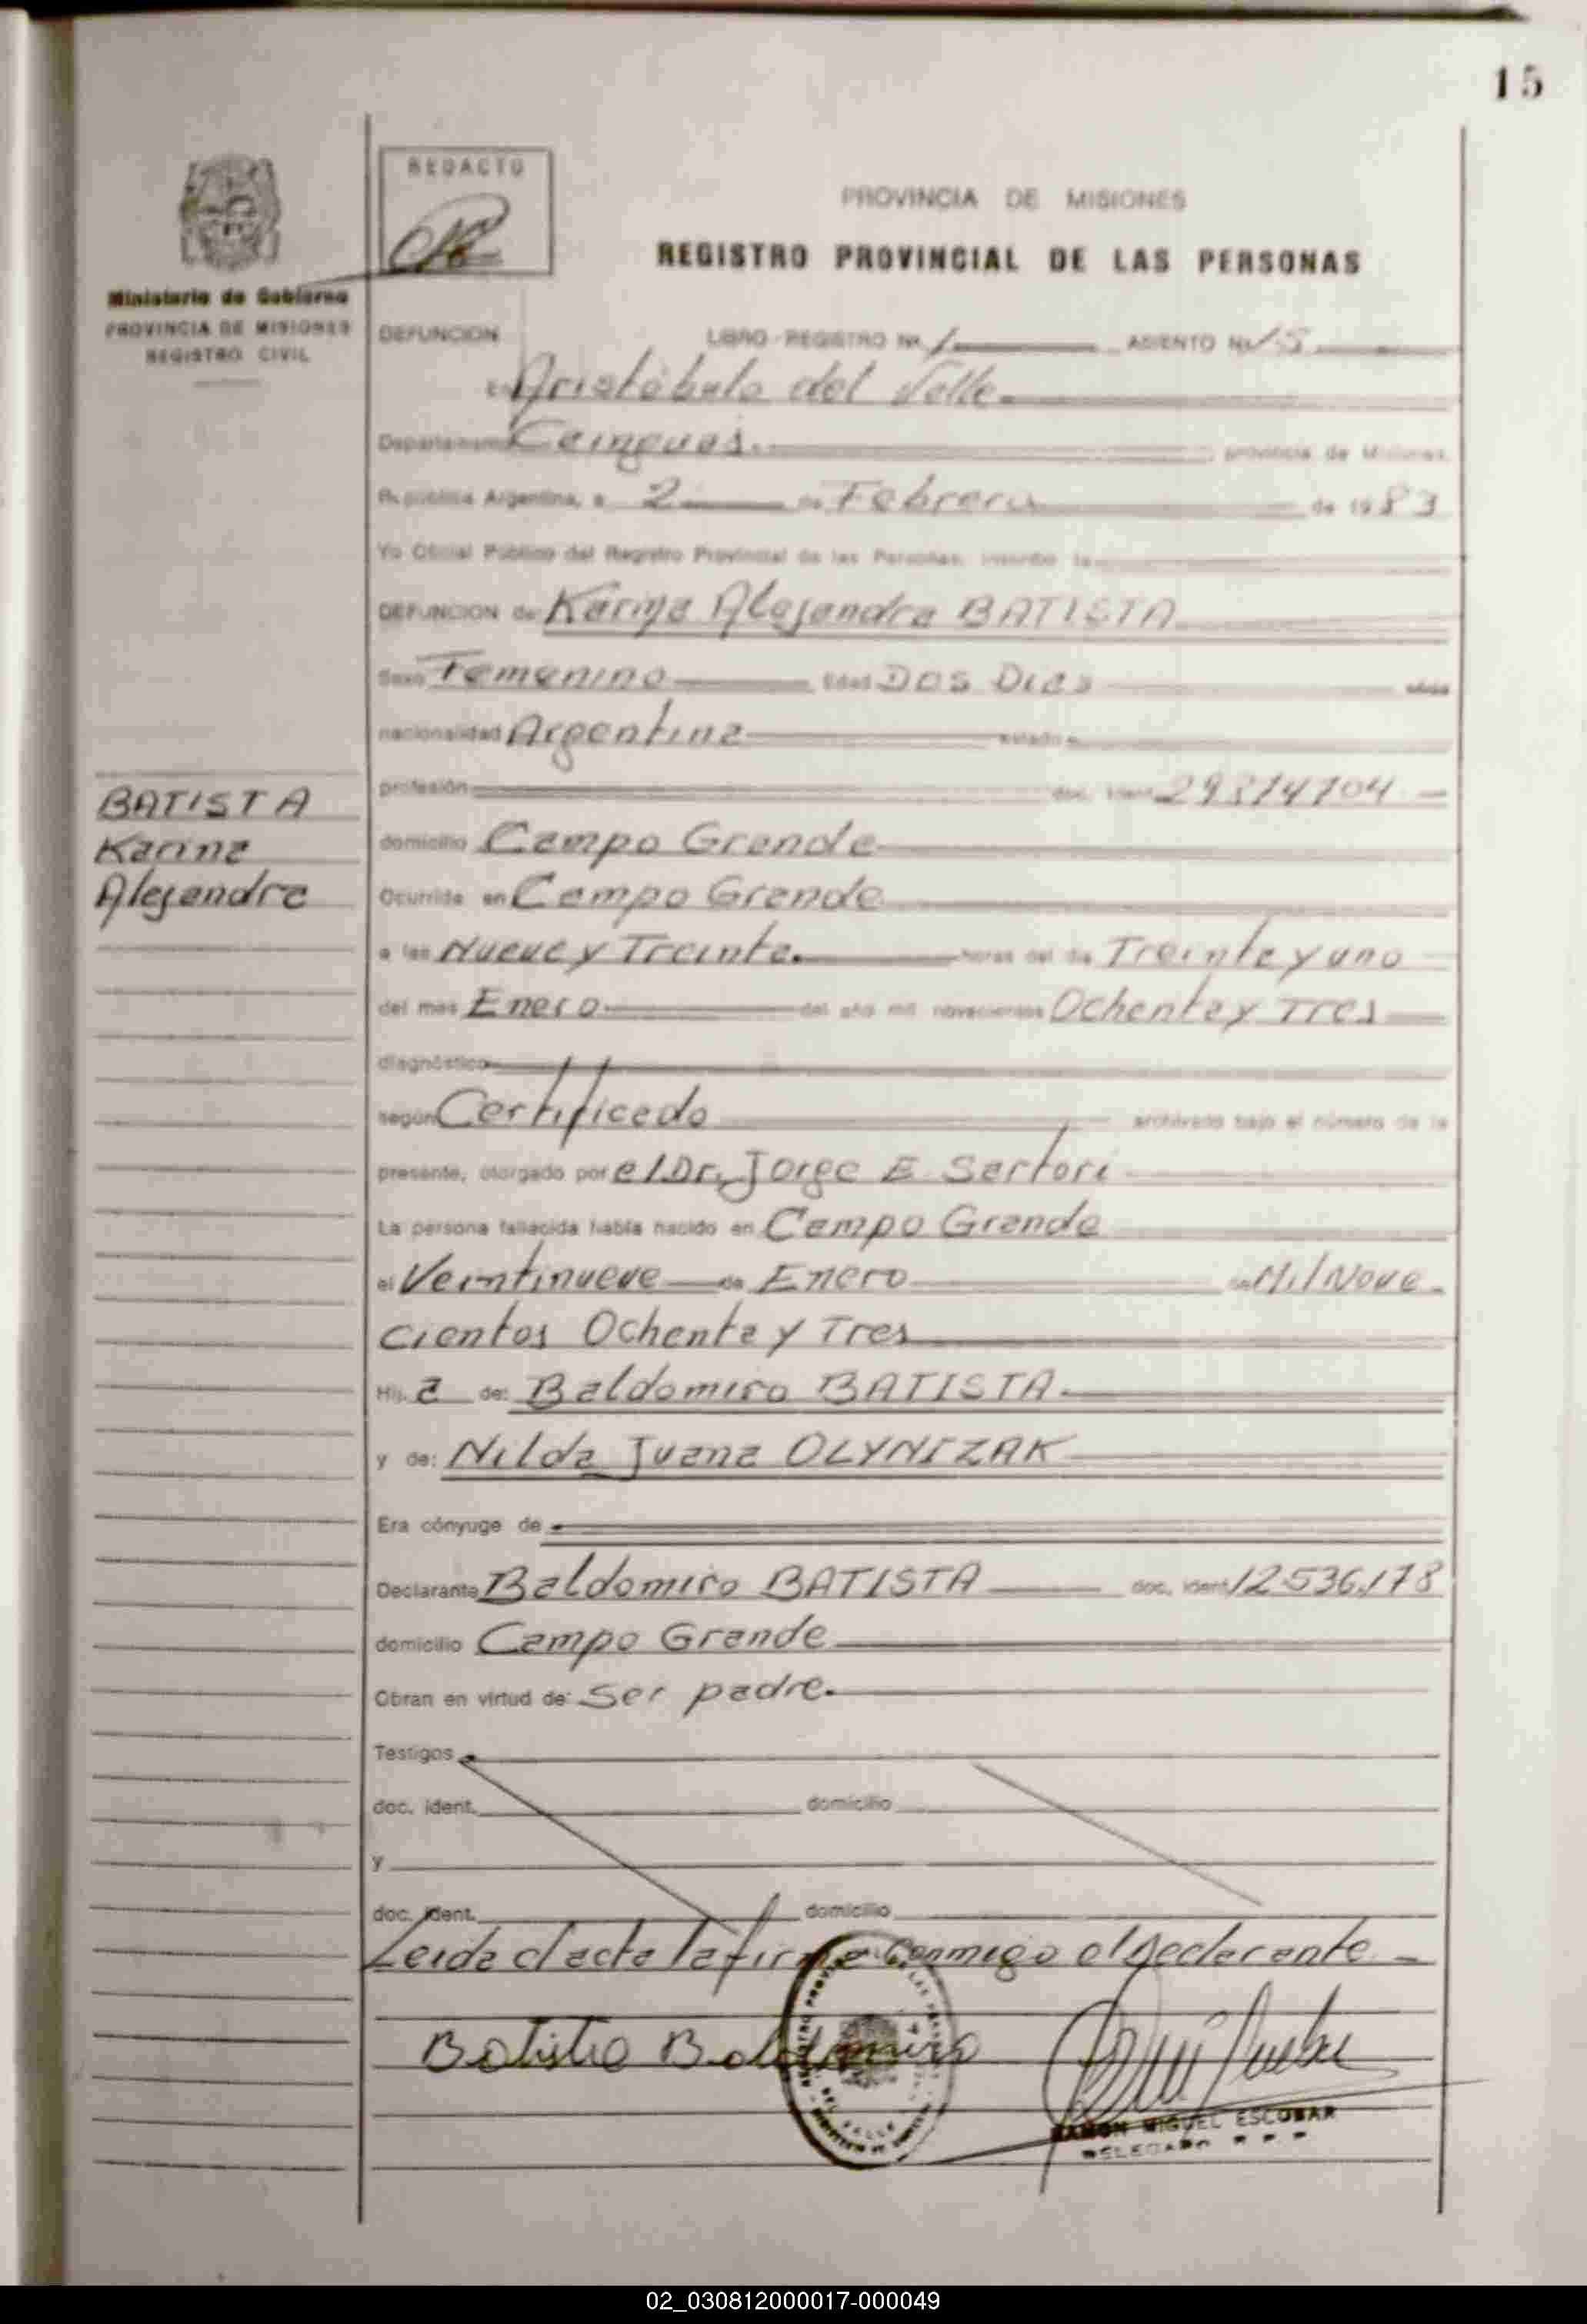 15
REDACTO
PROVINCIA DE MISIONES
REGISTRO PROVINCIAL DE LAS PERSONAS
Ministerio de Gobierno
PROVINCIA DE MISIONES
REGISTRO CIVIL
DEFUNCION LIBRO-REGISTRO Nº 1 ASIENTO Nº 15
En Aristóbulo del Valle
Departamento Cainguas. provincia de Misiones,
República Argentina, a 2 de Febrero de 1983
Yo Oficial Público del Registro Provincial de las Personas, inscribo la
DEFUNCION de Karina Alejandra BATISTA
Sexo Femenino Edad DOS Dias años
nacionalidad Argentina estado
profesión doc. ident.
BATISTA
Karina
Alejandra
domicilio Campo Grande
Ocurrida en Campo Grande
a las Nueve y Treinta. horas del día Treinta y uno
del mes Enero del año mil novecientos Ochenta y Tres
diagnóstico
según Certificado archivado bajo el número de la
presente, otorgado por el Dr. Jorge E Sartori
La persona fallecida había nacido en Campo Grande
el Veintinueve de Enero de Mil Nove
cientos Ochenta y Tres
Hij a de: Baldomiro BATISTA.
y de: Nilda Juana OLYNIZAK
Era cónyuge de
Declarante Baldomiro BATISTA doc. ident. 12.536.178
domicilio Campo Grande
Obran en virtud de: Ser padre.
Testigos
doc. ident. domicilio
y
doc. ident. domicilio
Leida el acta la firma conmigo el declarante
Batista Baldomiro
RAMON MIGUEL ESCOBAR
DELEGADO R. P. P.
02_030812000017-000049